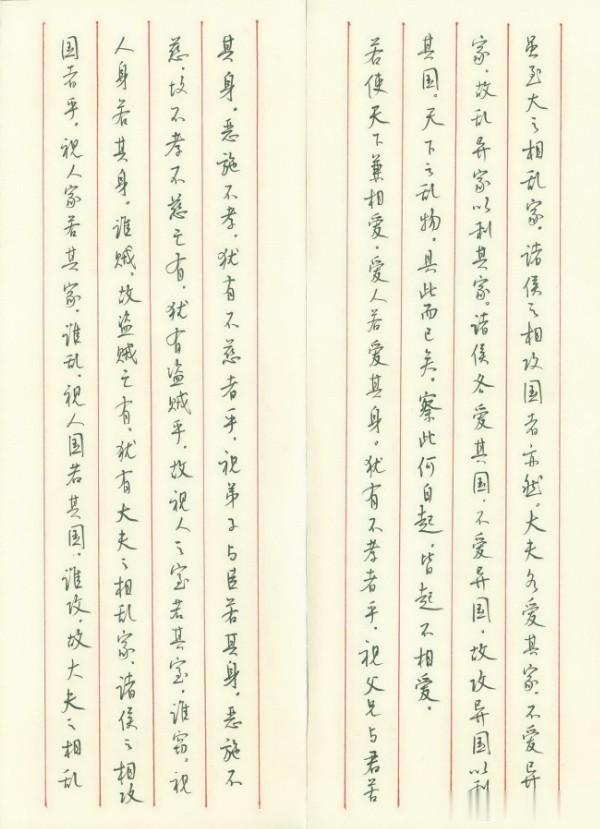 虽至大之相乱家，诸侯之相攻国者亦然。大夫各爱其家，不爱异
家，故乱异家以利其家。诸侯各爱其国，不爱异国，故攻异国以利
其国。天下之乱物，具此而已矣，察此何自起，皆起不相爱。
若使天下兼相爱，爱人若爱其身。犹有不孝者乎，视父兄与君若
其身，恶施不孝，犹有不慈者乎，视弟子与臣若其身，恶施不
慈，故不孝不慈亡有，犹有盗贼乎，故视人之室若其室，谁窃，视
人身若其身，谁贼，故盗贼亡有，犹有大夫之相乱家，诸侯之相攻
国者乎，视人家若其家，谁乱，视人国若其国，谁攻，故大夫之相乱